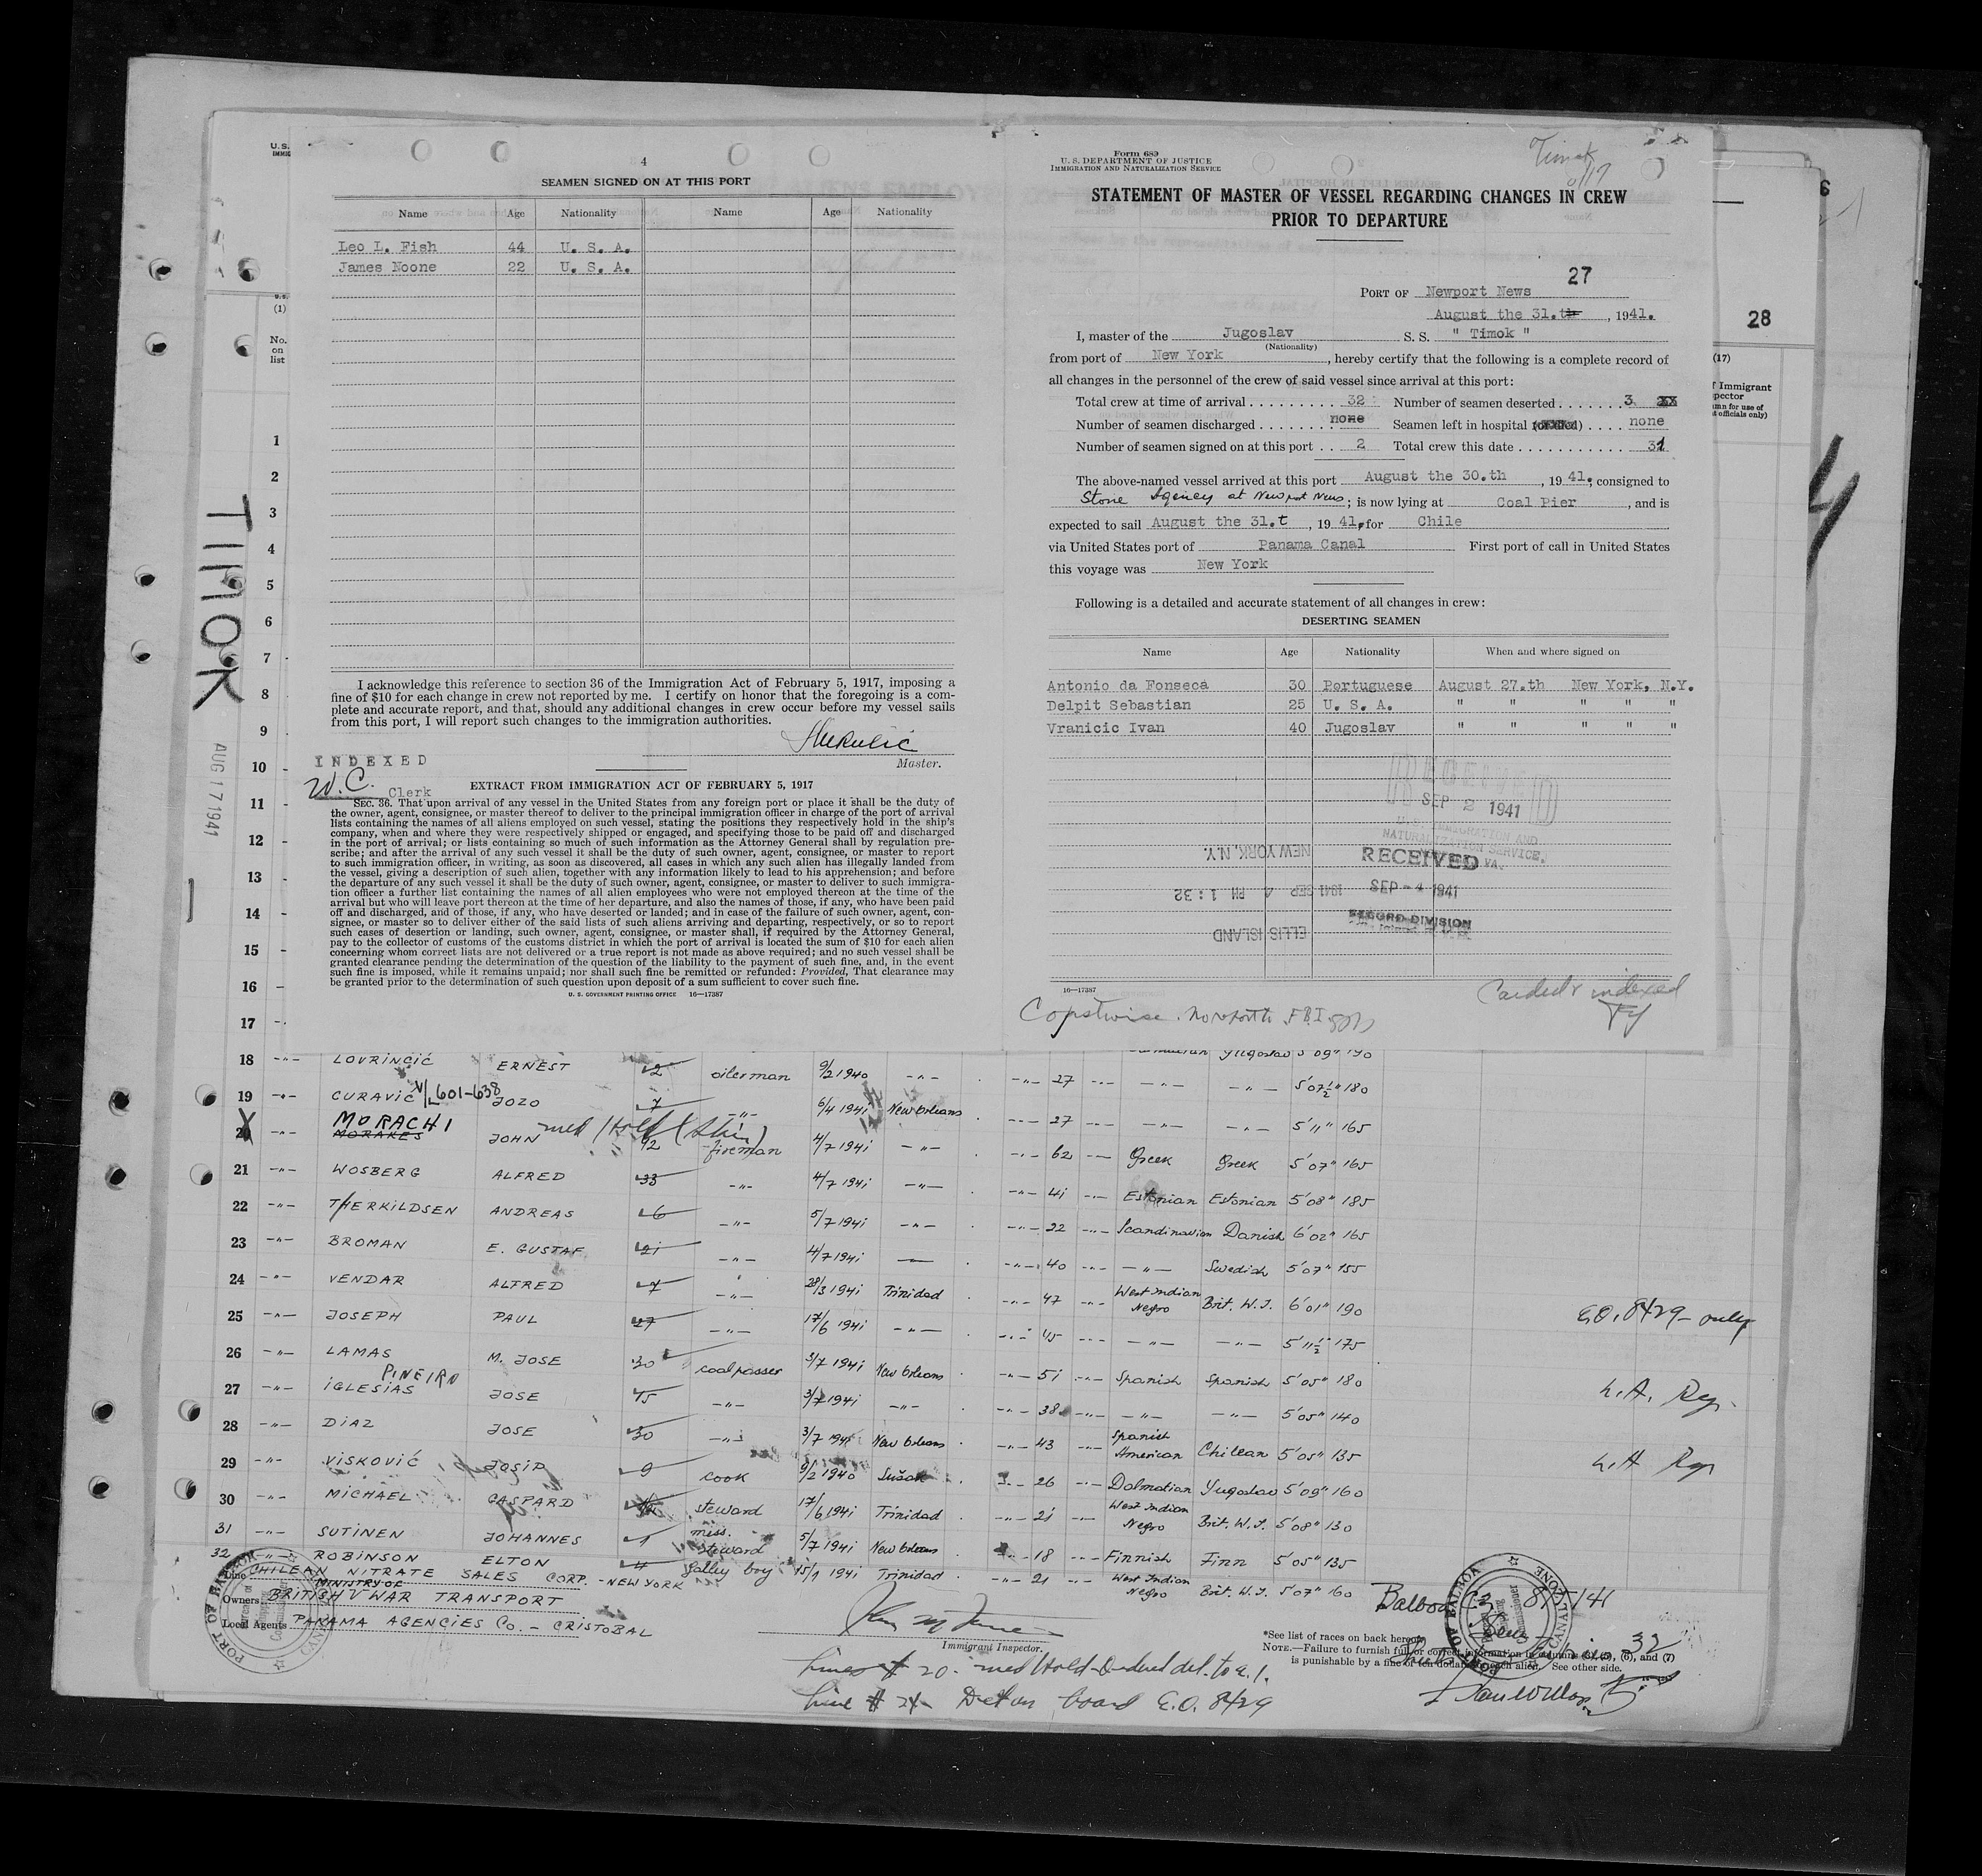 4
SEAMEN SIGNED ON AT THIS PORT
Name Age Nationality Name Age Nationality
Leo L. Fish 44 U. S. A.
James Noone 22 U. S. A.
I acknowledge this reference to section 36 of the Immigration Act of February 5, 1917, imposing a
fine of $10 for each change in crew not reported by me. I certify on honor that the foregoing is a com-
plete and accurate report, and that, should any additional changes in crew occur before my vessel sails
from this port, I will report such changes to the immigration authorities.
Master.
INDEXED
W.C. Clerk
EXTRACT FROM IMMIGRATION ACT OF FEBRUARY 5, 1917
SEC. 36. That upon arrival of any vessel in the United States from any foreign port or place it shall be the duty of
the owner, agent, consignee, or master thereof to deliver to the principal immigration officer in charge of the port of arrival
lists containing the names of all aliens employed on such vessel, stating the positions they respectively hold in the ship's
company, when and where they were respectively shipped or engaged, and specifying those to be paid off and discharged
in the port of arrival; or lists containing so much of such information as the Attorney General shall by regulation pre-
scribe; and after the arrival of any such vessel it shall be the duty of such owner, agent, consignee, or master to report
to such immigration officer, in writing, as soon as discovered, all cases in which any such alien has illegally landed from
the vessel, giving a description of such alien, together with any information likely to lead to his apprehension; and before
the departure of any such vessel it shall be the duty of such owner, agent, consignee, or master to deliver to such immigra-
tion officer a further list containing the names of all alien employees who were not employed thereon at the time of the
arrival but who will leave port thereon at the time of her departure, and also the names of those, if any, who have been paid
off and discharged, and of those, if any, who have deserted or landed; and in case of the failure of such owner, agent, con-
signee, or master so to deliver either of the said lists of such aliens arriving and departing, respectively, or so to report
such cases of desertion or landing, such owner, agent, consignee, or master shall, if required by the Attorney General,
pay to the collector of customs of the customs district in which the port of arrival is located the sum of $10 for each alien
concerning whom correct lists are not delivered or a true report is not made as above required; and no such vessel shall be
granted clearance pending the determination of the question of the liability to the payment of such fine, and, in the event
such fine is imposed, while it remains unpaid; nor shall such fine be remitted or refunded: Provided, That clearance may
be granted prior to the determination of such question upon deposit of a sum sufficient to cover such fine.
U. S. GOVERNMENT PRINTING OFFICE 16—17387
Form 689
U. S. DEPARTMENT OF JUSTICE
IMMIGRATION AND NATURALIZATION SERVICE
Timok
8/17
STATEMENT OF MASTER OF VESSEL REGARDING CHANGES IN CREW
PRIOR TO DEPARTURE
27
PORT OF Newport News
August the 31.th, 1941.
I, master of the Jugoslav S. S. " Timok "
(Nationality)
from port of New York, hereby certify that the following is a complete record of
all changes in the personnel of the crew of said vessel since arrival at this port:
Total crew at time of arrival . . . . . . . . . . 32 Number of seamen deserted . . . . . . . 3 XX
Number of seamen discharged . . . . . . . . none Seamen left in hospital . . . . none
Number of seamen signed on at this port . . 2 Total crew this date . . . . . . . . . . . 31
The above-named vessel arrived at this port August the 30.th, 1941; consigned to
Stone Agency at Newport News; is now lying at Coal Pier, and is
expected to sail August the 31.t, 1941, for Chile
via United States port of Panama Canal First port of call in United States
this voyage was New York
Following is a detailed and accurate statement of all changes in crew:
DESERTING SEAMEN
Name Age Nationality When and where signed on
Antonio da Fonseca 30 Portuguese August 27.th New York, N.Y.
Delpit Sebastian 25 U. S. A. " " " " "
Vranicic Ivan 40 Jugoslav " " " " "
RECEIVED
SEP 2 1941
U. S. IMMIGRATION AND
NATURALIZATION SERVICE,
VA.
NEW YORK, N.Y.
RECEIVED
1941 SEP 4 PM 1:32
SEP -4 1941
RECORD DIVISION
ELLIS ISLAND
16—17387
Carded & indexed
FY
Coastwise. Norfolk F.B.I.
28
(17)
TIMOK
AUG 17 1941
U.S.
(1)
No.
on
list
1
2
3
4
5
6
7
8
9
10
11
12
13
14
15
16
17
18 -"- LOVRINCIĆ ERNEST 2 oilerman 9/2 1940 -"- -"- 27 -"- -"- -"- 5'07½" 180
19 -"- CURAVIĆ V/L601-638 JOZO 7 -"- 6/4 1941 New Orleans -"- 27 -"- -"- -"- 5'11" 165
20 -"- MORACHI MORAKES JOHN med Hold (Skin) 12 fireman 4/7 1941 -"- -"- 62 -"- Greek Greek 5'07" 165
21 -"- WOSBERG ALFRED 33 -"- 4/7 1941 -"- -"- 41 -"- Estonian Estonian 5'08" 185
22 -"- THERKILDSEN ANDREAS 6 -"- 5/7 1941 -"- -"- 22 -"- Scandinavian Danish 6'02" 165
23 -"- BROMAN E. GUSTAF 21 -"- 4/7 1941 — -"- 40 -"- -"- Swedish 5'07" 155
24 -"- VENDAR ALFRED 7 -"- 28/3 1941 Trinidad -"- 47 -"- West Indian Negro Brit. W.I. 6'01" 190 E.O. 8429 - only
25 -"- JOSEPH PAUL 27 -"- 17/6 1941 -"- -"- 45 -"- -"- -"- 5'11½" 175
26 -"- LAMAS M. JOSE 30 coalpasser 3/7 1941 New Orleans -"- 51 -"- Spanish Spanish 5'05" 180
27 -"- PINEIRO IGLESIAS JOSE 15 -"- 3/7 1941 -"- -"- 38 -"- -"- -"- 5'05" 140
28 -"- DIAZ JOSE 30 -"- 3/7 1941 New Orleans -"- 43 -"- Spanish American Chilean 5'05" 135
29 -"- VISKOVIĆ JOSIP 9 cook 9/2 1940 Sušak 26 -"- Dalmatian Yugoslav 5'09" 160
30 -"- MICHAEL GASPARD steward 17/6 1941 Trinidad -"- 21 -"- West Indian Negro Brit. W.I. 5'08" 130
31 -"- SUTINEN JOHANNES 1 steward 5/7 1941 New Orleans 18 -"- Finnish Finn 5'05" 135
32 -"- ROBINSON ELTON 4 galley boy 15/1 1941 Trinidad -"- 21 -"- West Indian Negro Brit. W.I. 5'07" 160
Line CHILEAN NITRATE SALES CORP. - NEW YORK
Owners BRITISH MINISTRY OF WAR TRANSPORT
Local Agents PANAMA AGENCIES Co. - CRISTOBAL
PORT OF BALBOA
Immigrant Inspector.
*See list of races on back hereof.
NOTE.—Failure to furnish full or correct information in columns (3), (5), (6), and (7)
is punishable by a fine of ten dollars for each alien. See other side.
Line # 20 - med Hold - Ordered del. to E.I.
Line # 24 Det on board E.O. 8429